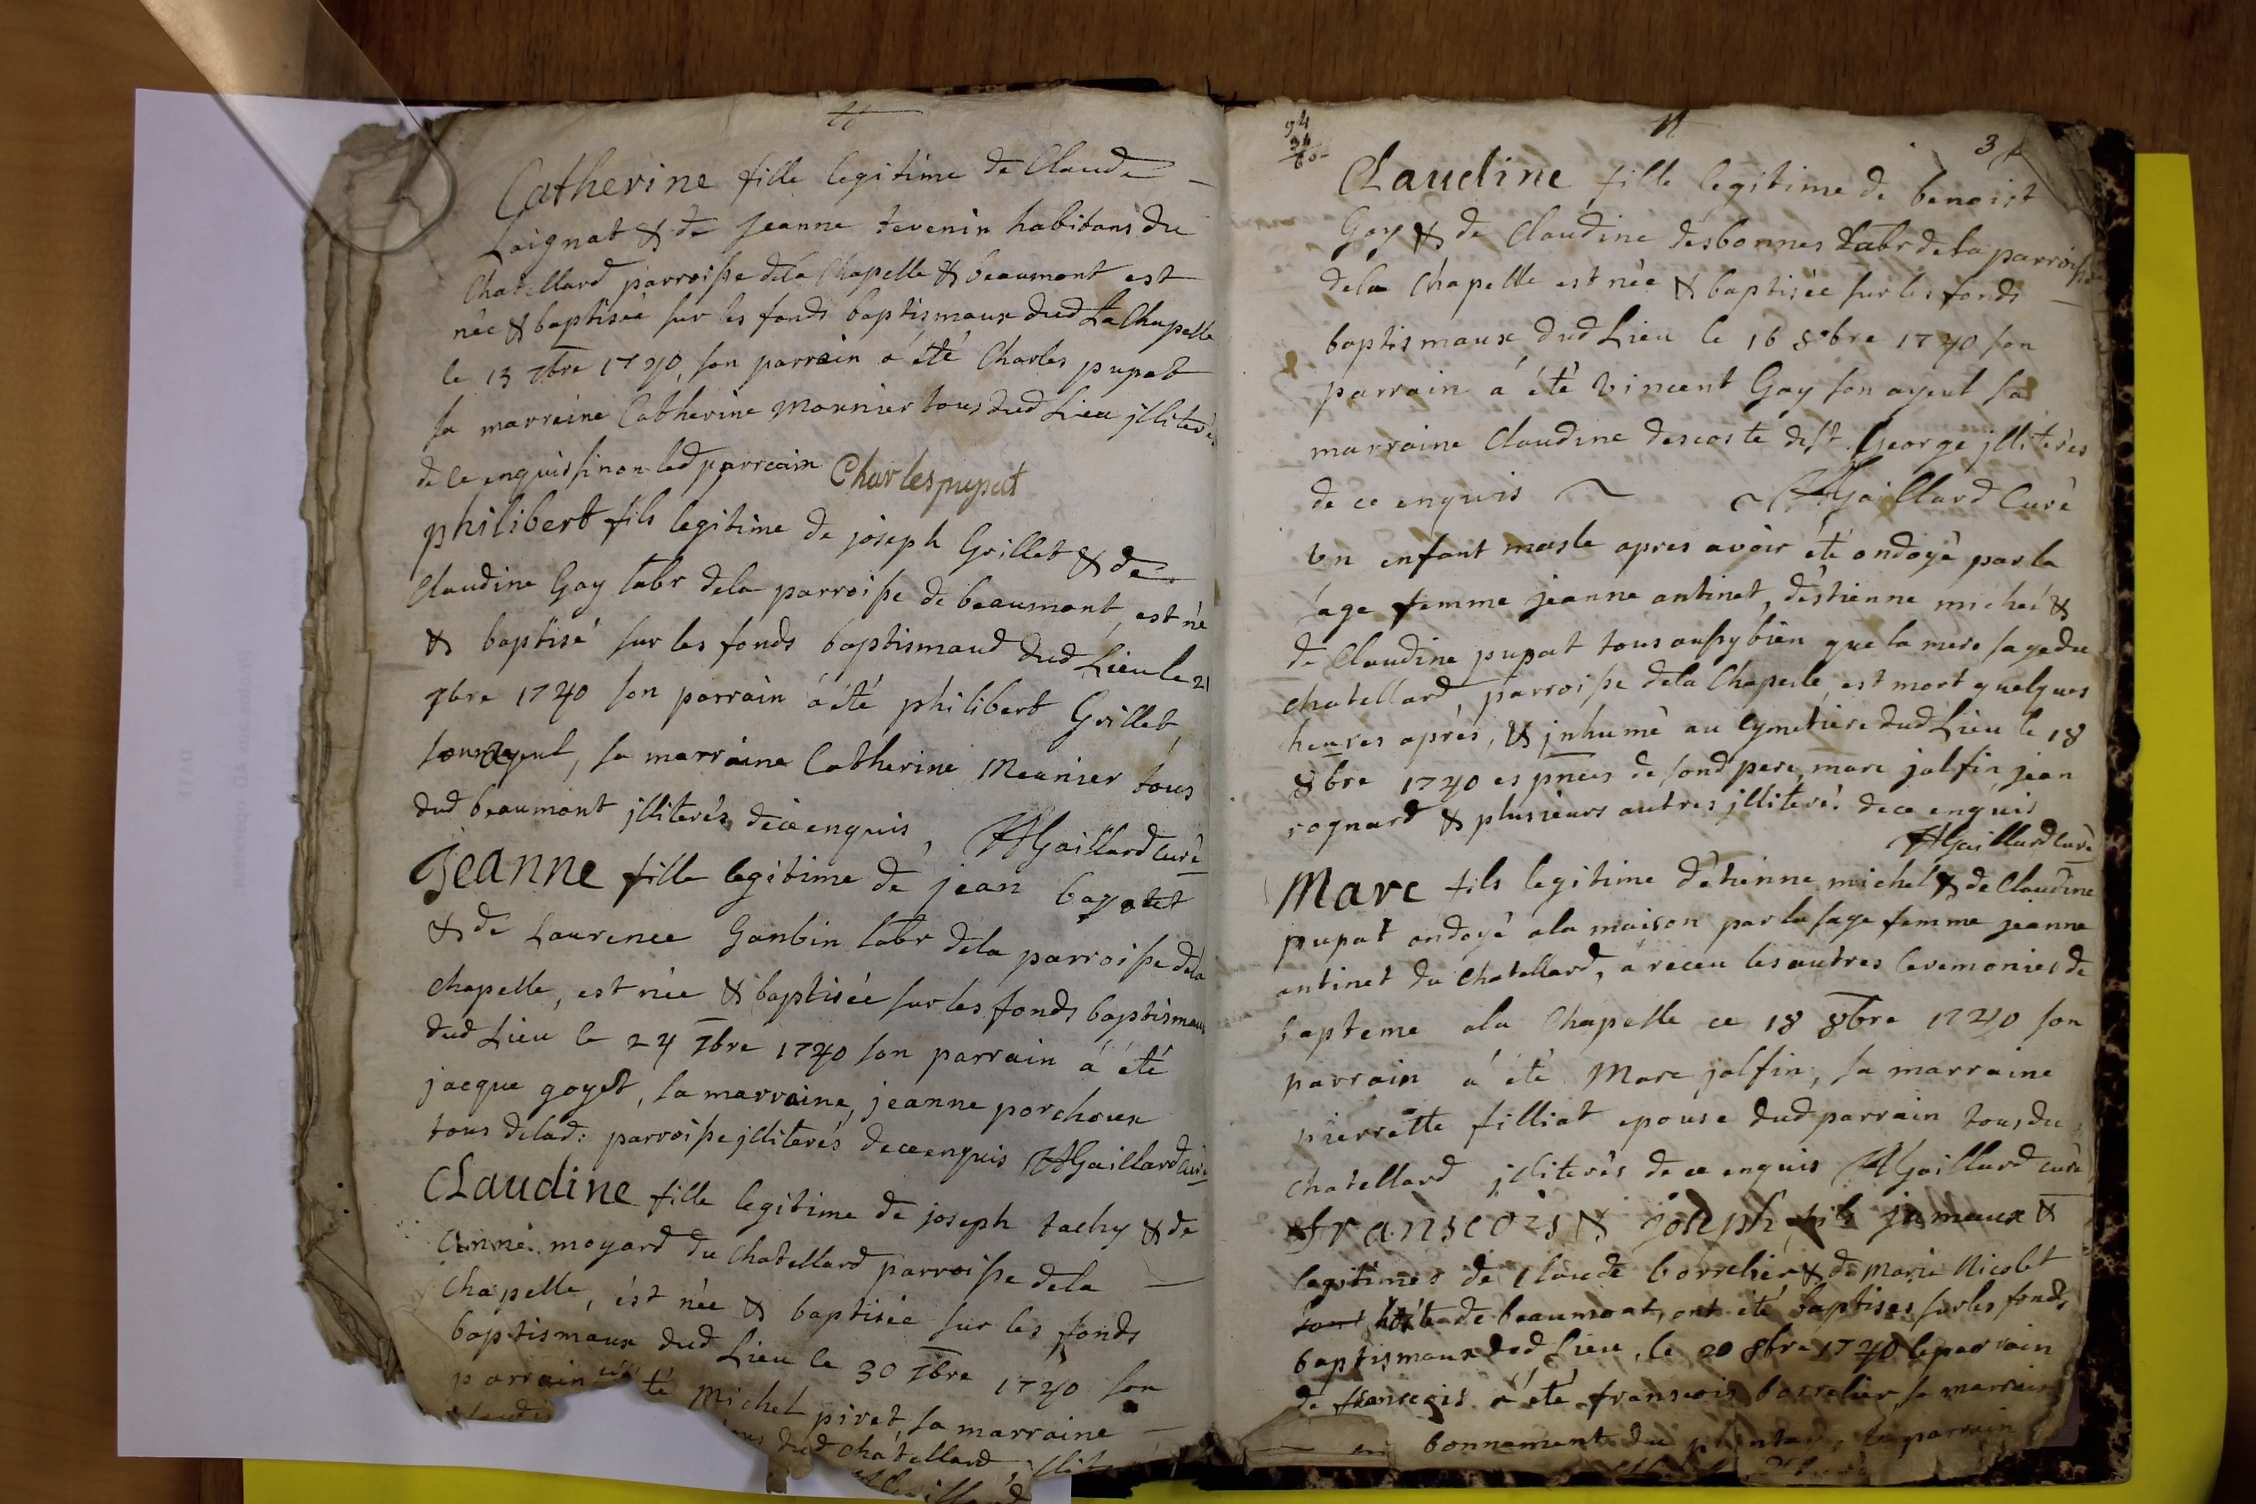 Catherine fille legitime de Claude
Laignat & de jeanne tevenin habitans du
Chatellard parroisse dela Chapelle & beaumont est
née & baptisée sur les fonds baptismaux dud La Chapelle
le 13 7bre 1740, son parrain a été Charles pupat
sa marraine Catherine Mounier tous dud Lieu jlliterés
de ce enquis sinon led parrain Charles pupat
philibert fils legitime de joseph Grillet & de
Claudine Gay labr dela parroisse de beaumont, est né
& baptisé sur les fonds baptismaud dud Lieu le 21
7bre 1740 son parrain a été philibert Grillet,
son ayeul, sa marraine Catherine Meunier tous
dud beaumont jlliterés de ce enquis, Gaillard Curé
Jeanne fille legitime de jean bayetet
& de Laurence Gonbin labr dela parroisse dela
chapelle, est née & baptisée sur les fonds baptismaux
dud Lieu le 24 7bre 1740 son parrain a été
jacque goyet, sa marraine, jeanne porchoux
tous delad: parroisse jlliterés de ce enquis Gaillard Curé
Claudine fille legitime de joseph tachy & de
Anne moyard du Chatellard parroisse dela
Chapelle, est née & baptisée sur les fonds
baptismaux dud Lieu le 30 7bre 1740 son
parrain a été Michel pirat, sa marraine
dud chatellard
94
34
60
3
Claudine fille legitime de benoist
Gay & de Claudine desbonnes labr dela parroisse
dela Chapelle est née & baptisée sur les fonds
baptismaux dud Lieu le 16 8bre 1740 son
parrain a été vincent Gay son ayeul sa
marraine Claudine descoste de st. George jlliterés
de ce enquis Gaillard Curé
Un enfant masle apres avoir été ondoyé par la
sage femme jeanne antinet, d'estienne michel &
de Claudine pupat tous aussy bien que la mere sage du
chatellard parroisse dela Chapelle, est mort quelques
heures aprés, & jnhumé au Cymetiere dud Lieu le 18
8bre 1740 es pnces de sond pere, marc jalfin, jean
rognard & plusieurs autres jlliterés de ce enquis
Gaillard Curé
Marc fils legitime d'etienne michel & de Claudine
pupat ondoyé ala maison par la sage femme jeanne
antinet du Chatellard, a receu les autres Ceremonies de
bapteme ala Chapelle ce 18 8bre 1740 son
parrain a été Marc jalfin, sa marraine
pierrette filliat epouse dud parrain tous du
Chatellard jlliterés de ce enquis Gaillard curé
franscois & joseph fils jumeaux &
legitimes de Claude borrelier & de Marie Nicolet
de beaumont, ont été baptises sur les fonds
baptismaux dud Lieu, le 20 8bre 1740 le parrain
de franscois a été franscois borrelier, sa marraine
bonnemont du parrain